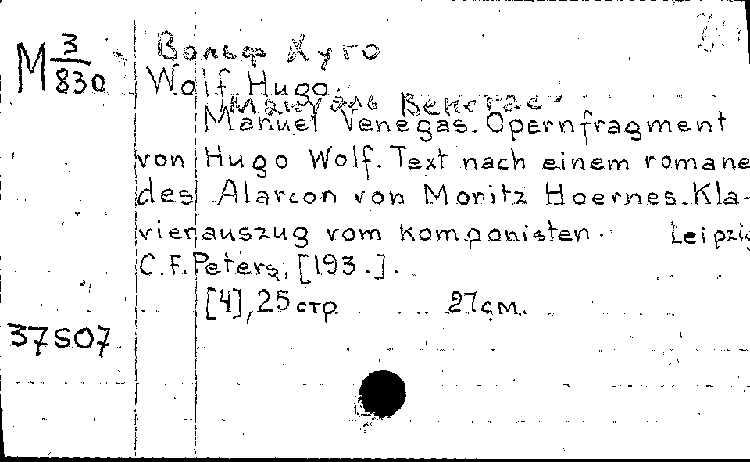 М 3/830 Вольф Хуго
Wolf, Hugo.
Мануэль Венегас
Manuel Venegas. Opernfragment
von Hugo Wolf. Text nach einem romane
des Alarcon von Moritz Hoernes. Kla-
vierauszug vom komponisten. Leipzig
C. F. Peters, [193.].
[4], 25 стр 27 см.
37507